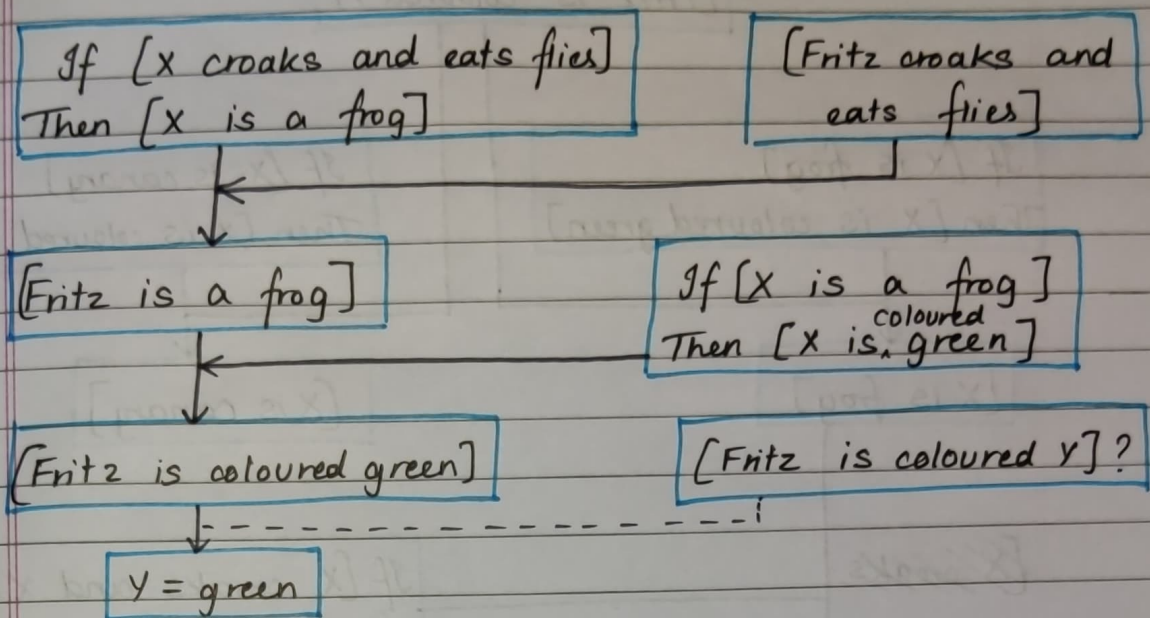 If [X croaks and eats flies]
Then [X is a frog]
[Fritz croaks and
eats flies]
[Fritz is a frog]
If [X is a frog]
Then [X is coloured green]
[Fritz is coloured green]
[Fritz is coloured Y]?
Y = green